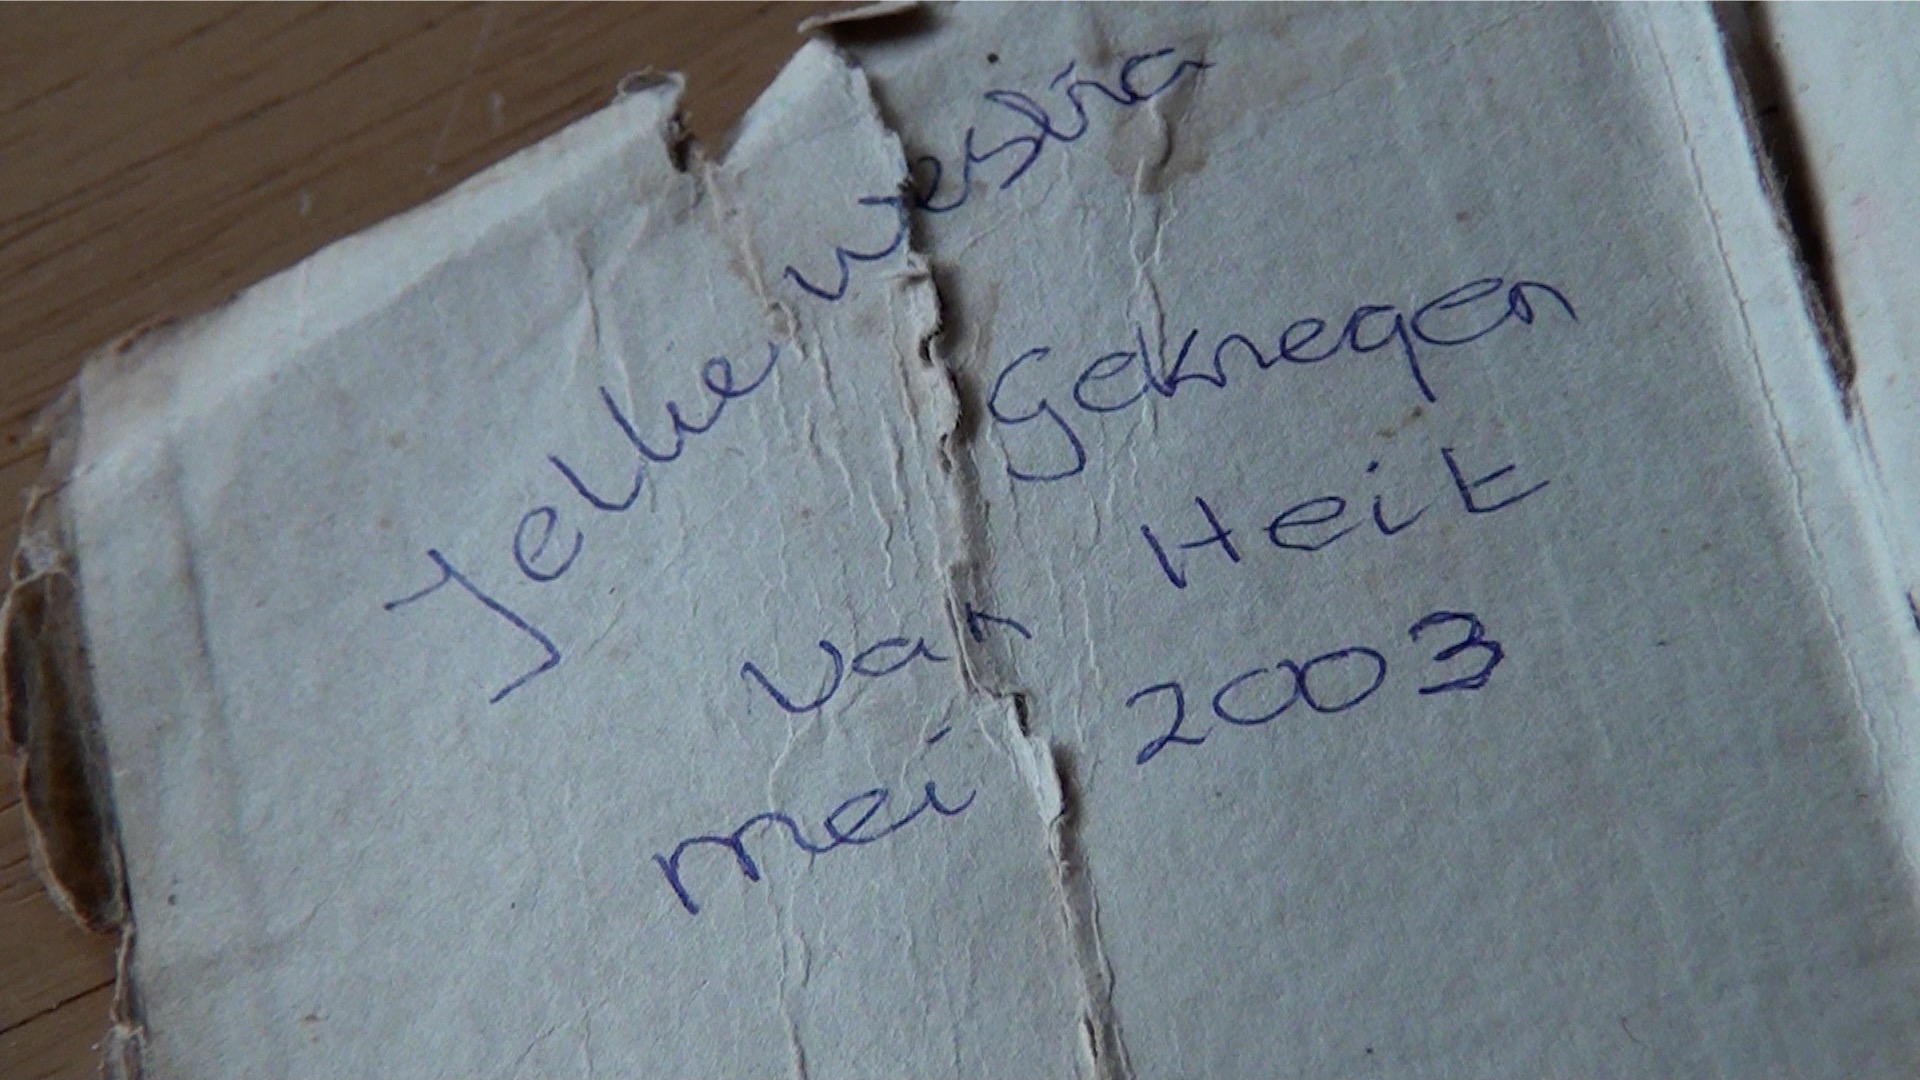 Jellie Westra
Gekregen
van Heit
mei 2003